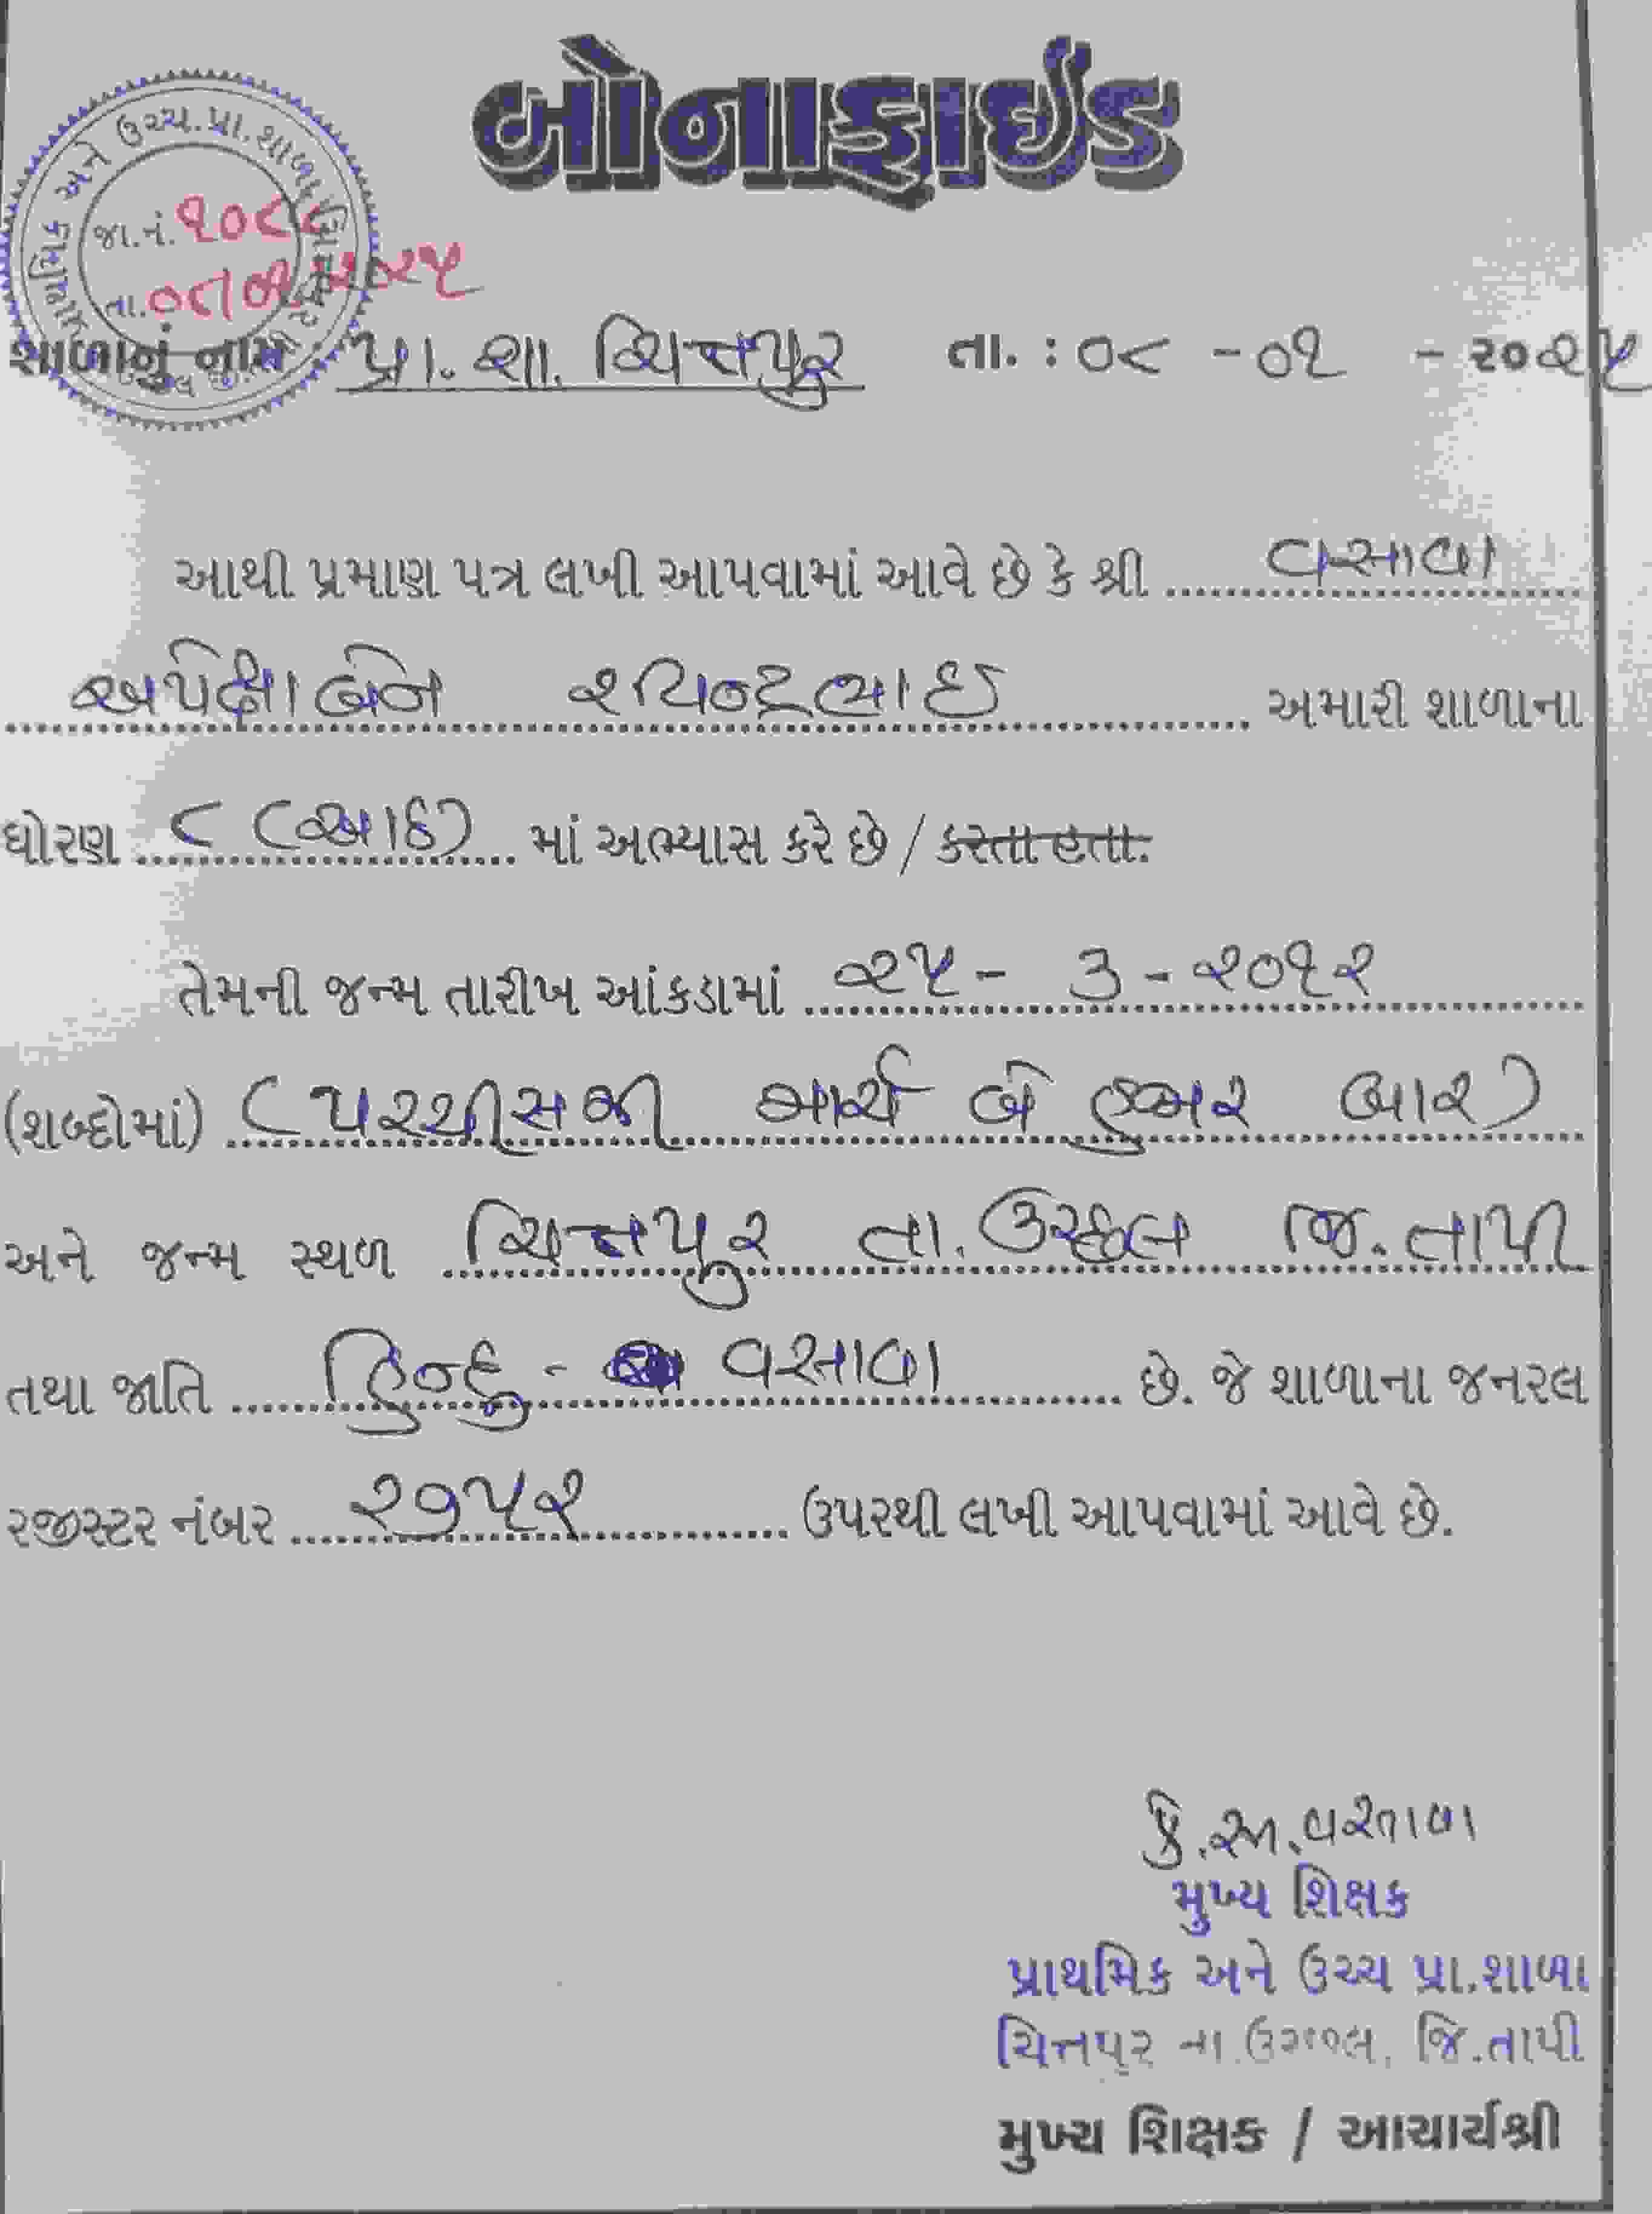 બોનાફાઈડ
પ્રાથમિક અને ઉચ્ચ.પ્રા.શાળા ચિત્તપુર
જા.નં. ૧૦૮
તા. ૦૮/૦૧/૨૦૨૫
શાળાનું નામ : પ્રા. શા. ચિત્તપુર તા. : ૦૮ - ૦૧ - ૨૦૨૫
આથી પ્રમાણ પત્ર લખી આપવામાં આવે છે કે શ્રી વસાવા
અપેક્ષાબેન રવિન્દ્રભાઈ અમારી શાળાના
ધોરણ ૮ (આઠ) માં અભ્યાસ કરે છે / કરતા હતા.
તેમની જન્મ તારીખ આંકડામાં ૨૫ - ૩ - ૨૦૧૨
(શબ્દોમાં) (પચ્ચીસમી માર્ચ બે હજાર બાર)
અને જન્મ સ્થળ ચિત્તપુર તા. ઉચ્છલ જિ. તાપી
તથા જાતિ હિન્દુ - વસાવા છે. જે શાળાના જનરલ
રજીસ્ટર નંબર ૨૭૫૨ ઉપરથી લખી આપવામાં આવે છે.
કે. આર. વસાવા
મુખ્ય શિક્ષક
પ્રાથમિક અને ઉચ્ચ પ્રા.શાળા
ચિત્તપુર તા.ઉચ્છલ, જિ.તાપી
મુખ્ય શિક્ષક / આચાર્યશ્રી